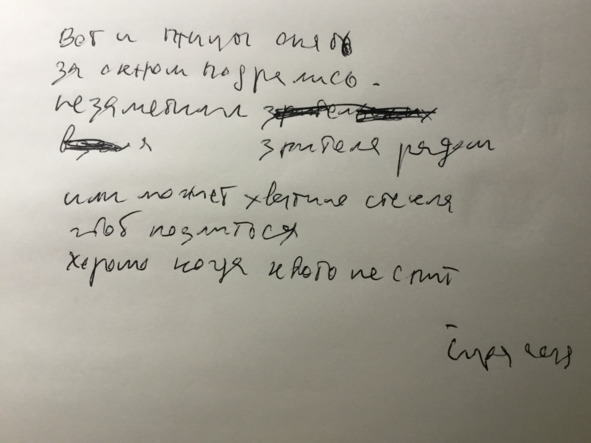 Вот и птицы опять
за окном подрались.
незаметили
я зрителя рядом
или может хватило стекла
чтоб позлиться
хорошо когда никого не спит